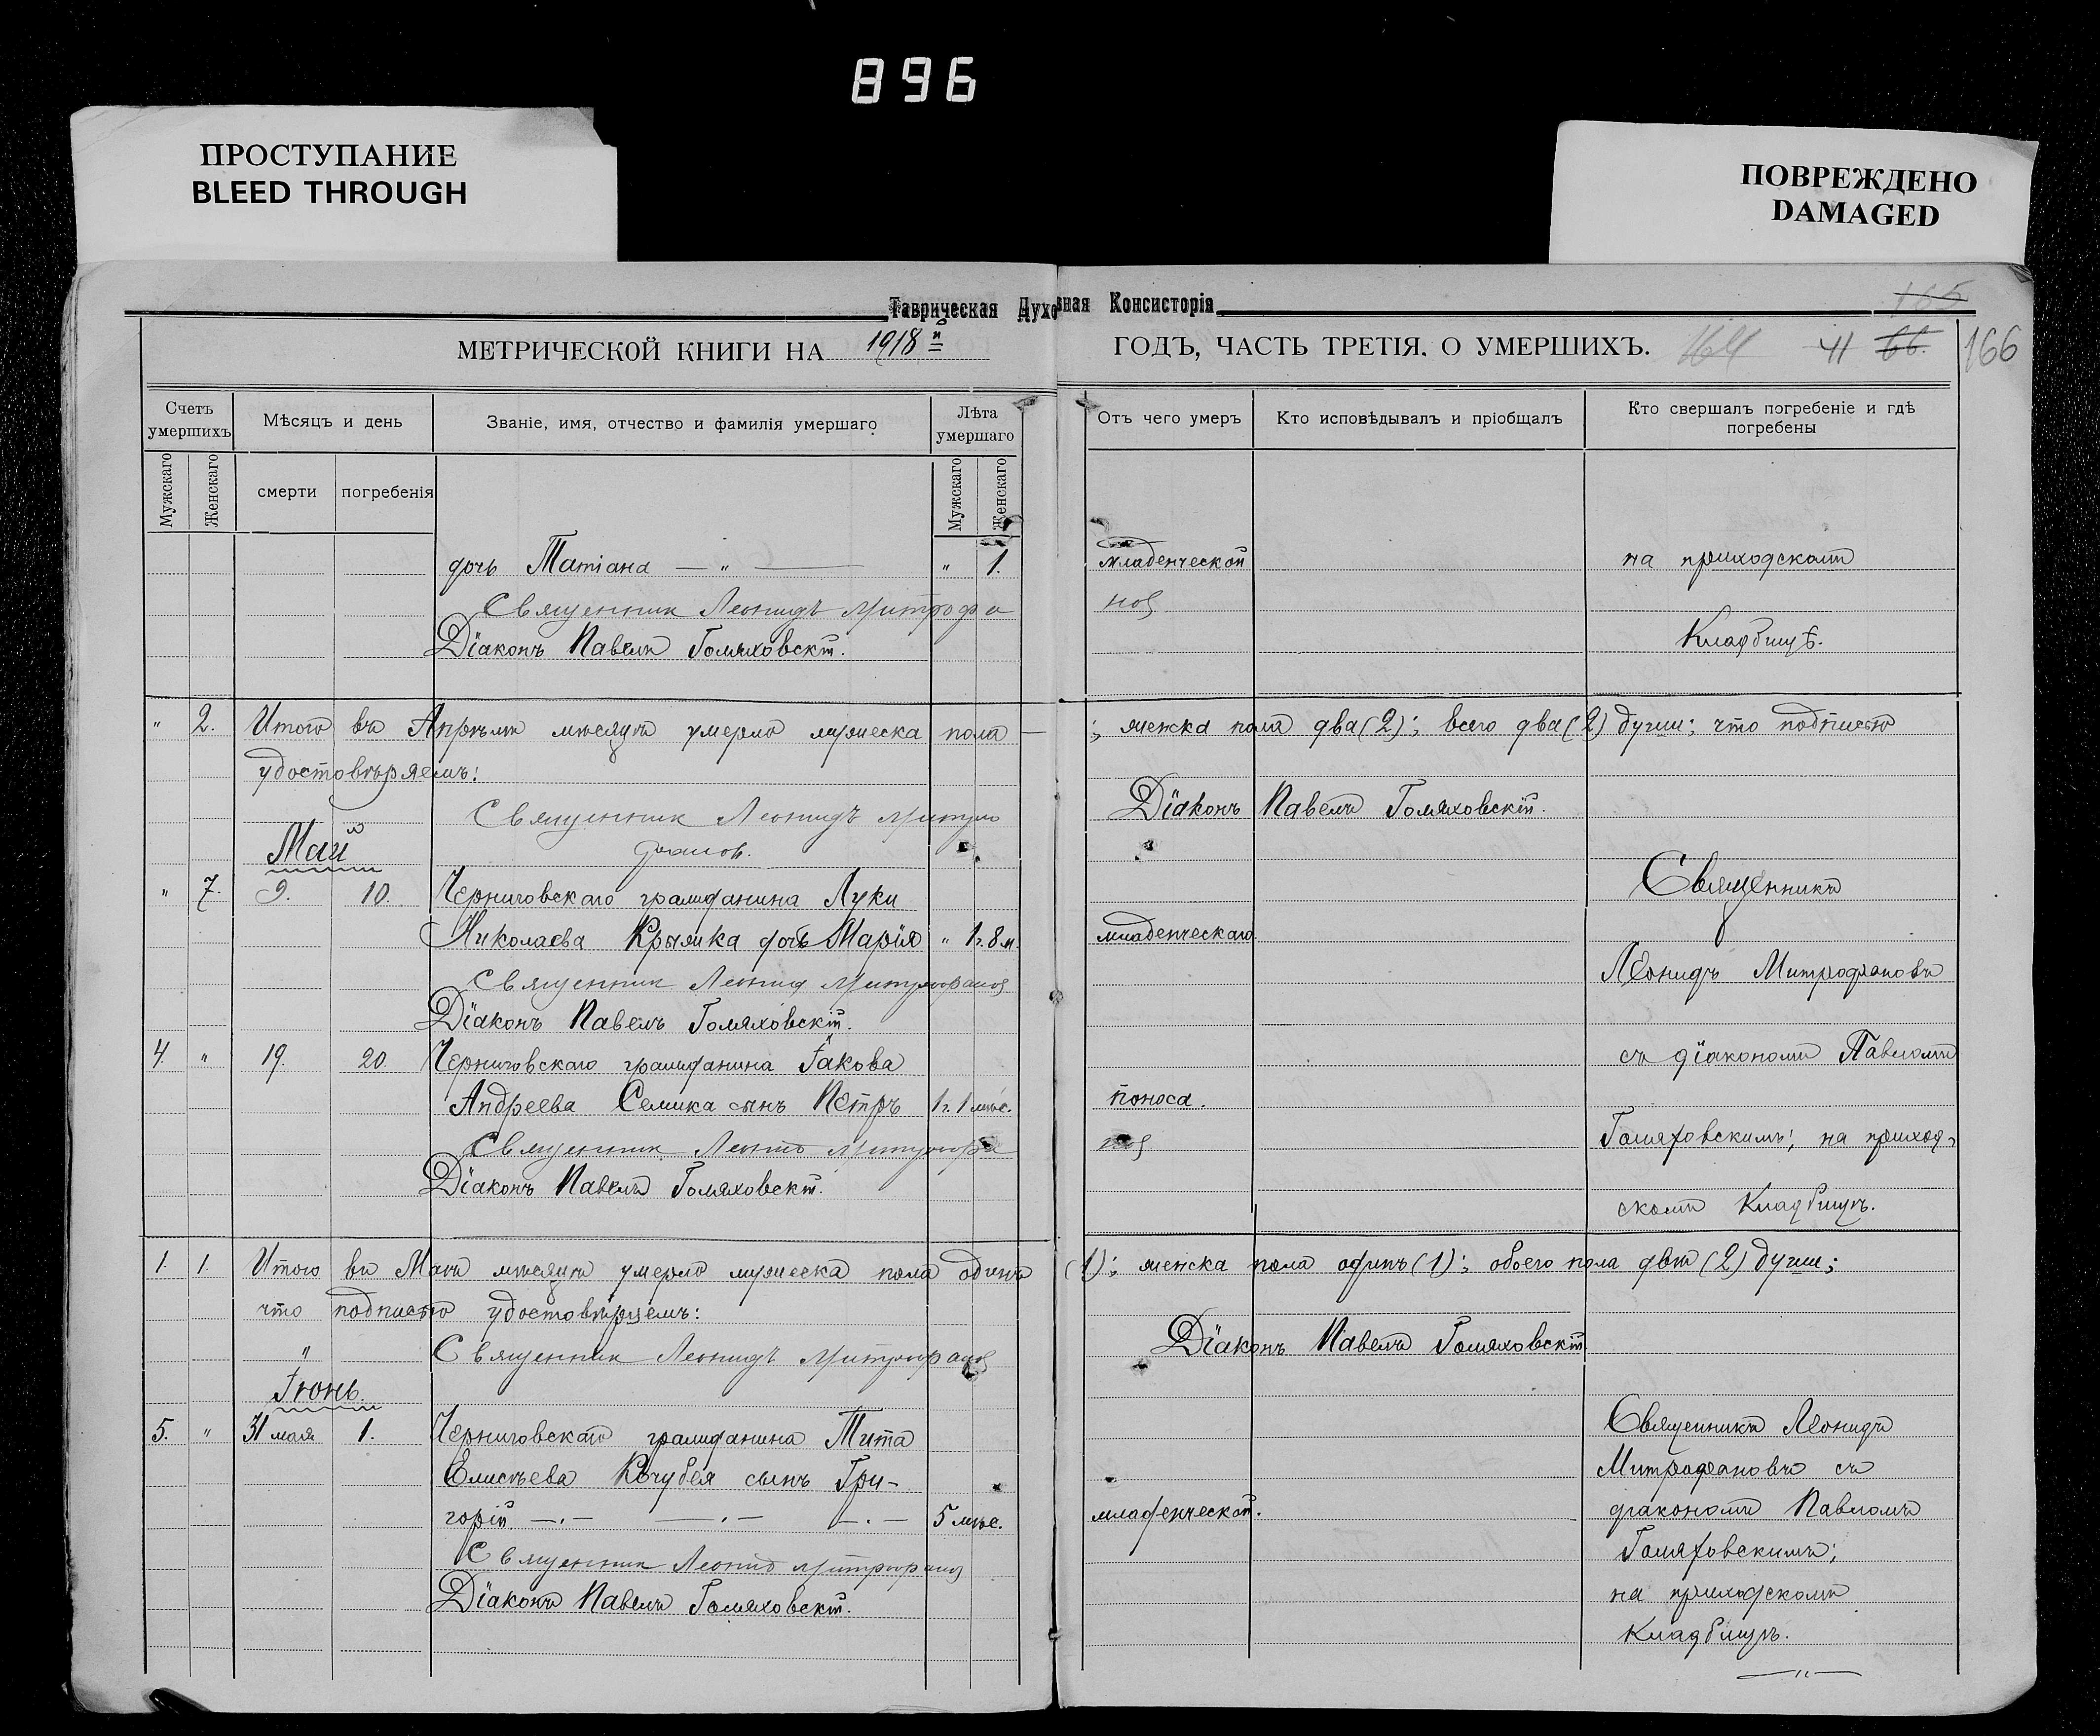 896
ПРОСТУПАНИЕ
BLEED THROUGH
ПОВРЕЖДЕНО
DAMAGED
Таврическая Духовная Консисторія
165
МЕТРИЧЕСКОЙ КНИГИ НА 1918й
ГОДЪ, ЧАСТЬ ТРЕТІЯ. О УМЕРШИХЪ.
164 41 66. 166
Счетъ умершихъ
Мѣсяцъ и день
Званіе, имя, отчество и фамилія умершаго
Лѣта умершаго
Отъ чего умеръ
Кто исповѣдывалъ и пріобщалъ
Кто свершалъ погребеніе и гдѣ погребены
Мужскаго
Женскаго
смерти
погребенія
Мужскаго
Женскаго
дочь Татіана — „ — „ 1.
младенческой
на приходскомъ
Священникъ Леонидъ Митрофа
нов
Діаконъ Павелъ Гомяховскій.
Кладбищѣ.
„ 2. Итого въ Апрѣлѣ мѣсяцѣ умерло мужеска пола —
; женска пола два (2); всего два (2) души; что подписью
удостовѣряемъ:
Священникъ Леонидъ Митро
фанов.
Діаконъ Павелъ Гомяховскій.
Май
„ 7. 9. 10. Черниговскаго гражданина Луки
Священникъ
Николаева Крыжка дочь Марія „ 1г. 8м.
младенческаго
Священник Леонид Митрофанов
Леонидъ Митрофановъ
Діаконъ Павелъ Гомяховскій.
4. „ 19. 20. Черниговскаго гражданина Іакова
съ діакономъ Павломъ
Андреева Семика сынъ Петръ 1г. 1 мѣс.
поноса.
Священник Леонид Митрофа
нов
Гомяховскимъ; на приход-
Діаконъ Павелъ Гомяховскій.
скомъ Кладбищѣ.
1. 1. Итого въ Маѣ мѣсяцѣ умерло мужеска пола одинъ
(1); женска пола одинъ (1); обоего пола двѣ (2) души;
что подписью удостовѣряемъ:
„ Священник Леонидъ Митрофанов
Діаконъ Павелъ Гомяховскій
Іюнь.
5. „ 31 мая 1. Черниговскаго гражданина Тита
Священникъ Леонидъ
Елисѣева Кочубея сынъ Гри-
Митрофановъ съ
горій. 5 мѣс.
младенческой.
діакономъ Павломъ
Священник Леонид Митрофанов
Гомяховскимъ;
Діаконъ Павелъ Гомяховскій.
на приходскомъ
Кладбищѣ.